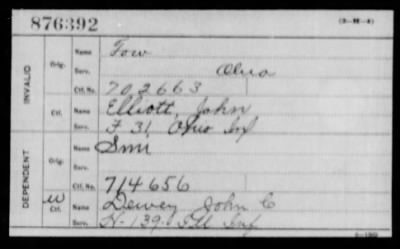 876392
(3-M-4)
INVALID
Orig.
Name Tow
Serv. Ohio
Ctf. No. 702663
Ctf.
Name Elliott, John
Serv. F 31 Ohio Inf
DEPENDENT
Orig.
Name Smi
Serv.
Ctf. No. 714656
W
Ctf.
Name Dewey John C
Serv. H-139- Ill Inf